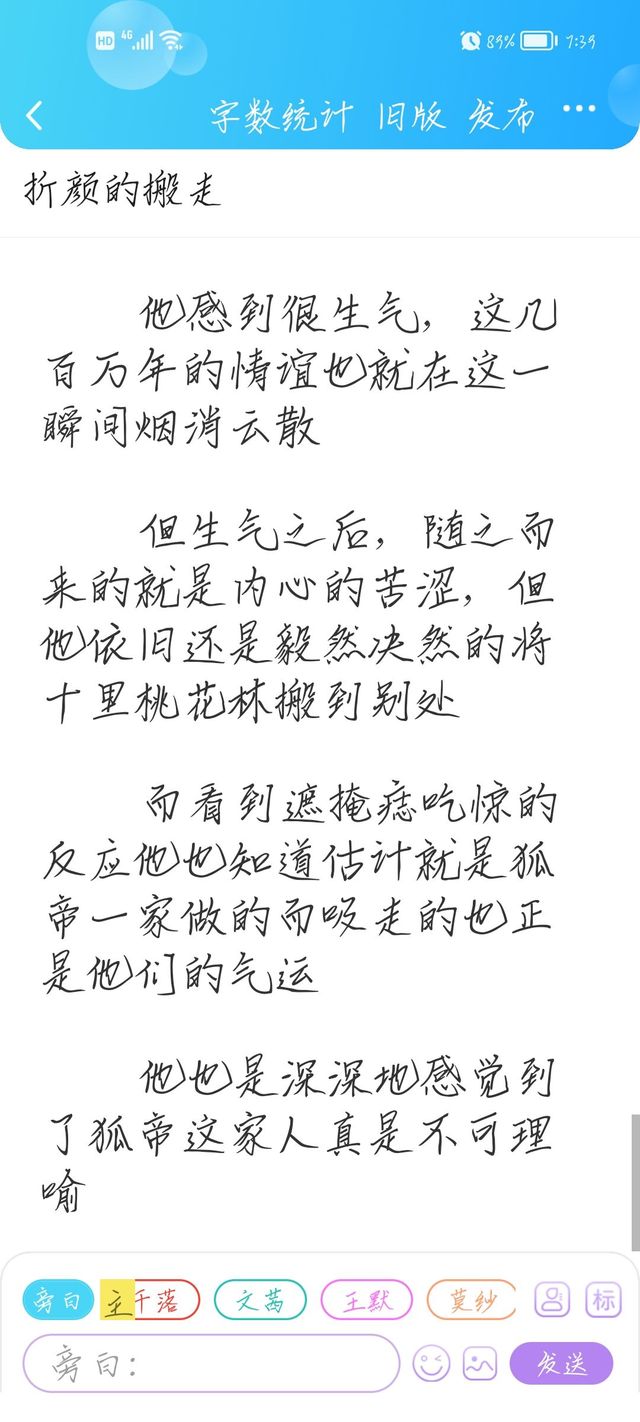 HD 4G 89% 7:39
字数统计 旧版 发布
折颜的搬走
他感到很生气，这几
百万年的情谊也就在这一
瞬间烟消云散
但生气之后，随之而
来的就是内心的苦涩，但
他依旧还是毅然决然的将
十里桃花林搬到别处
而看到遮掩痣吃惊的
反应他也知道估计就是狐
帝一家做的而吸走的也正
是他们的气运
他也是深深地感觉到
了狐帝这家人真是不可理
喻
旁白 主 千落 文茜 王默 莫纱 标
旁白： 发送